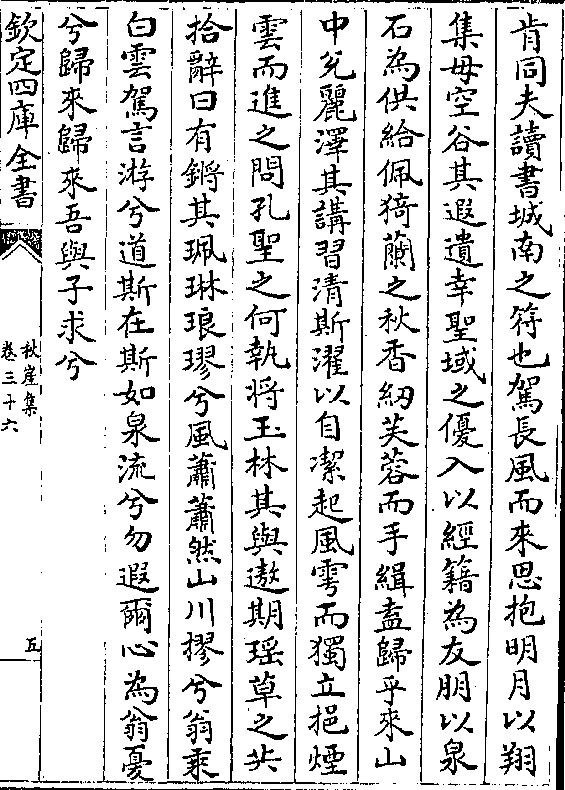 肯同夫讀書城南之符也駕長風而來思抱明月以翔
集毋空谷其遐遺幸聖域之優入以經籍為友朋以泉
石為供給佩猗蘭之秋香紉芙蓉而手緝盍歸乎來山
中兊麗澤其講習清斯濯以自潔起風雩而獨立挹煙
雲而進之問孔聖之何執將玉林其與遨期瑶草之共
拾辭曰有鏘其珮琳琅璆兮風蕭蕭然山川摎兮翁乘
白雲駕言游兮道斯在斯如泉流兮勿遐爾心為翁憂
兮歸來歸來吾與子求兮
欽定四庫全書
秋崖集
卷三十六
五